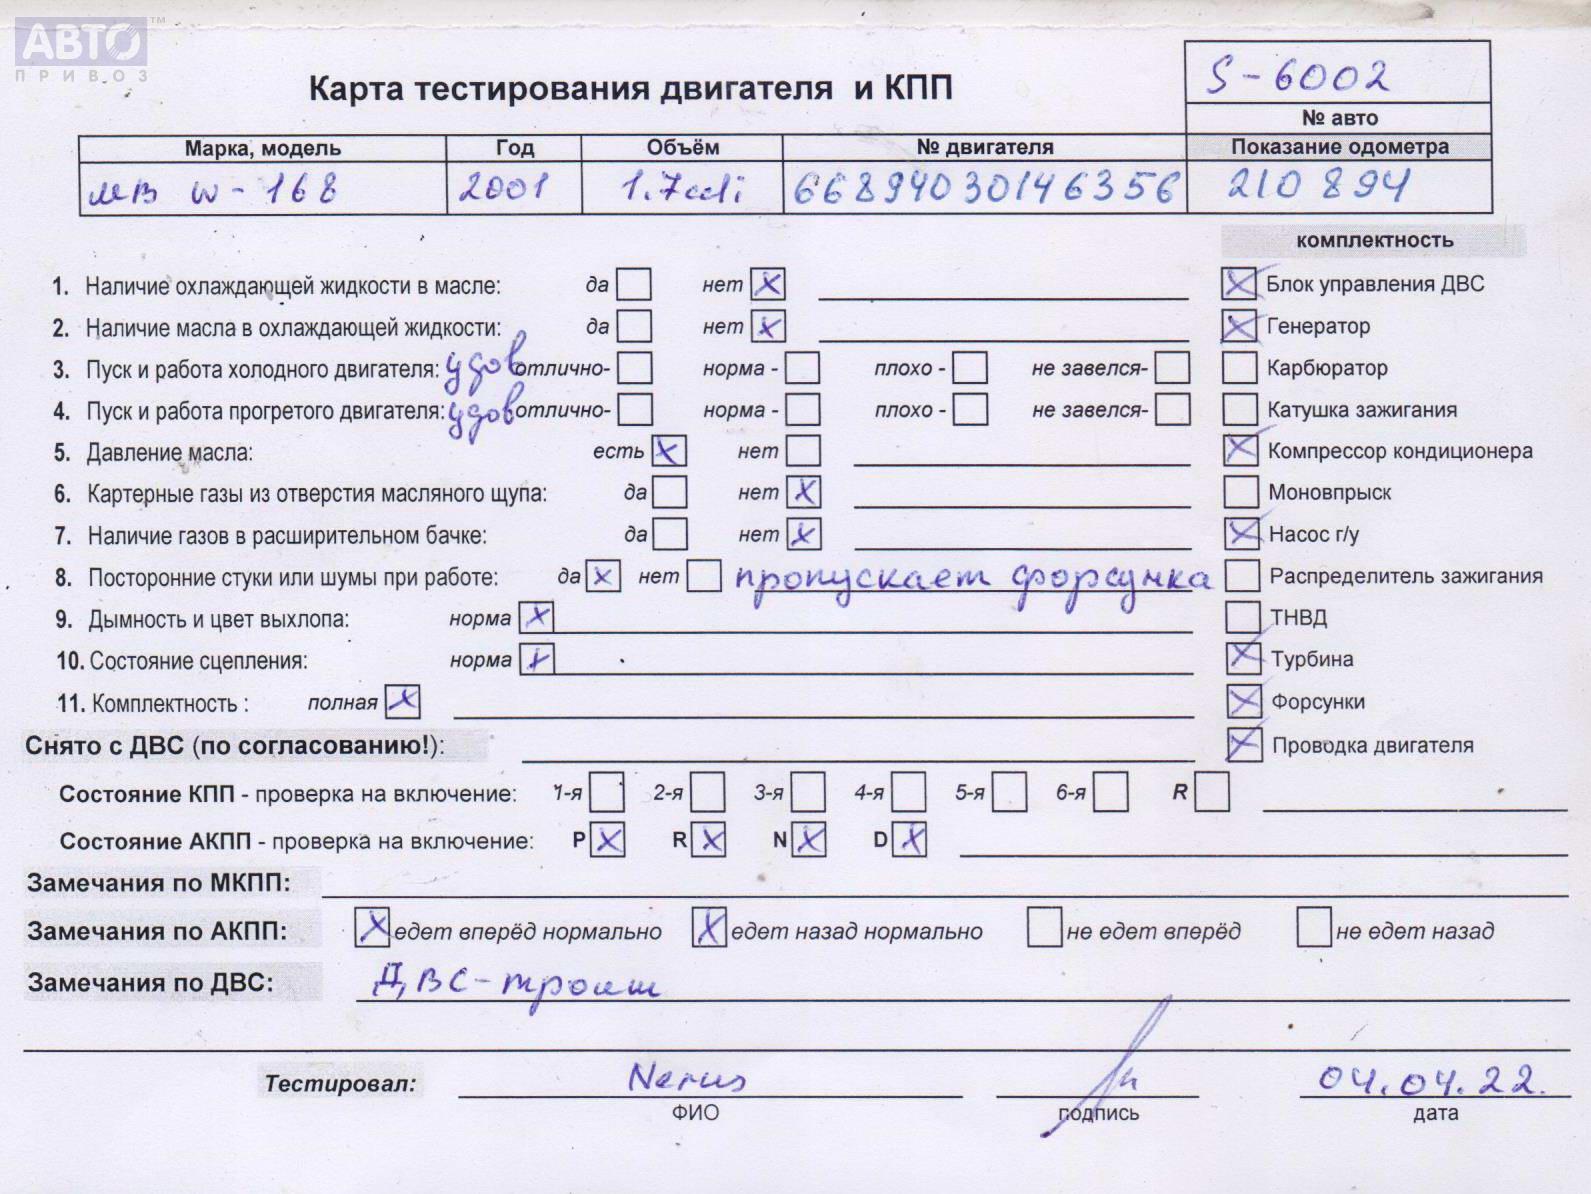 АВТО™
ПРИВОЗ
Карта тестирования двигателя и КПП
S-6002
№ авто
Марка, модель Год Объём № двигателя Показание одометра
МВ W-168 2001 1.7cdi 66894030146356 210 894
комплектность
1. Наличие охлаждающей жидкости в масле: да нет X X Блок управления ДВС
2. Наличие масла в охлаждающей жидкости: да нет X X Генератор
3. Пуск и работа холодного двигателя: удов отлично- норма - плохо - не завелся- Карбюратор
4. Пуск и работа прогретого двигателя: удов отлично- норма - плохо - не завелся- Катушка зажигания
5. Давление масла: есть X нет X Компрессор кондиционера
6. Картерные газы из отверстия масляного щупа: да нет X Моновпрыск
7. Наличие газов в расширительном бачке: да нет X X Насос г/у
8. Посторонние стуки или шумы при работе: да X нет пропускает форсунка Распределитель зажигания
9. Дымность и цвет выхлопа: норма X ТНВД
10. Состояние сцепления: норма X X Турбина
11. Комплектность : полная X X Форсунки
Снято с ДВС (по согласованию!): X Проводка двигателя
Состояние КПП - проверка на включение: 1-я 2-я 3-я 4-я 5-я 6-я R
Состояние АКПП - проверка на включение: P X R X N X D X
Замечания по МКПП:
Замечания по АКПП: X едет вперёд нормально X едет назад нормально не едет вперёд не едет назад
Замечания по ДВС: ДВС-троит
Тестировал: 04.04.22.
ФИО подпись дата